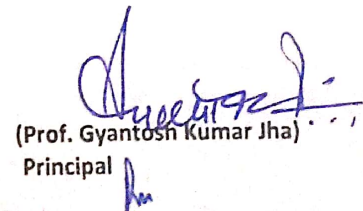 (Prof. Gyantosh Kumar Jha)
Principal